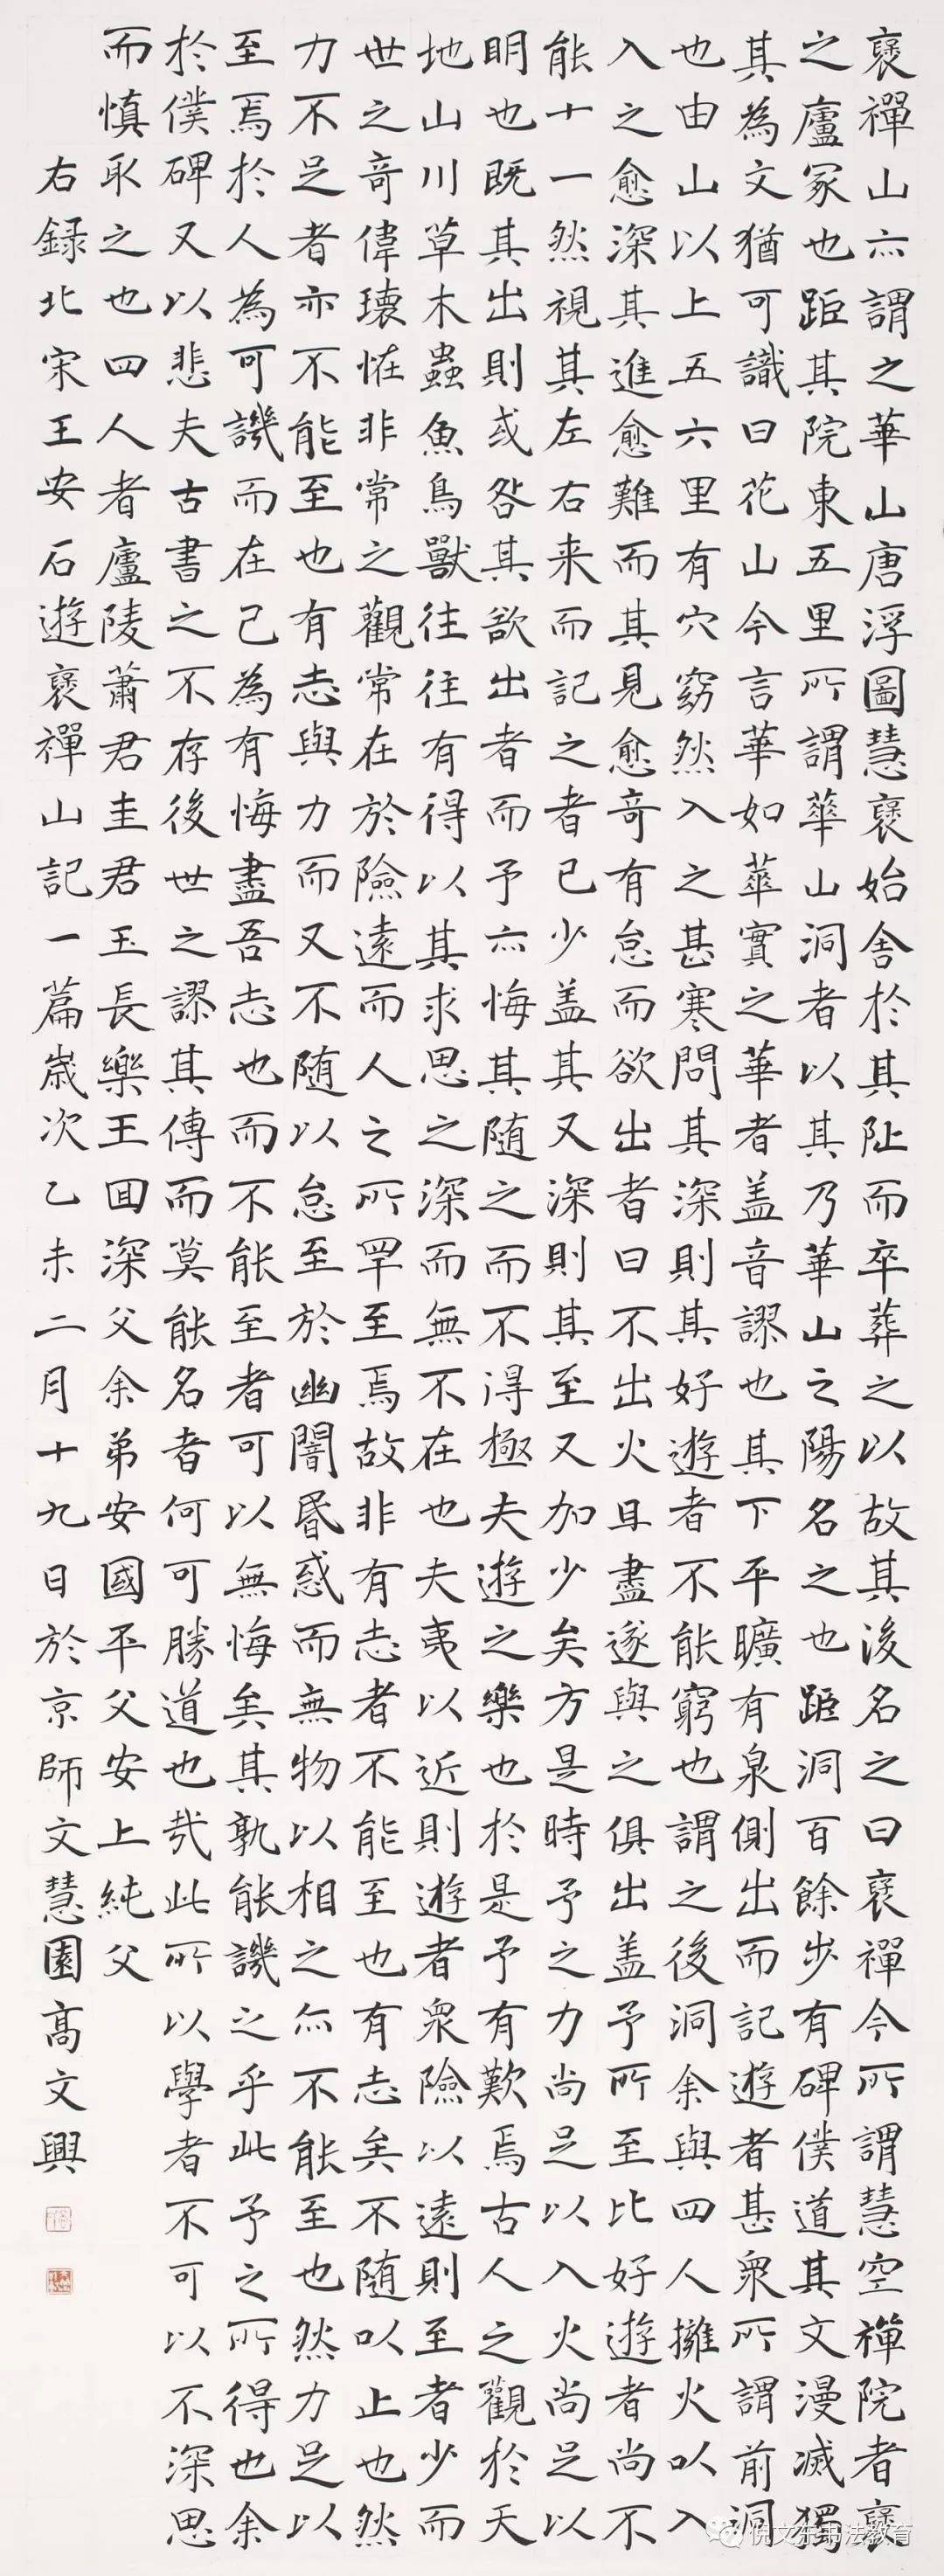 褒禪山亦謂之華山唐浮圖慧褒始舍於其阯而卒葬之以故其後名之曰褒禪今所謂慧空禪院者褒
之廬冢也距其院東五里所謂華山洞者以其乃華山之陽名之也距洞百餘步有碑僕道其文漫滅獨
其為文猶可識曰花山今言華如華實之華者盖音謬也其下平曠有泉側出而記遊者甚衆所謂前洞
也由山以上五六里有穴窈然入之甚寒問其深則其好遊者不能窮也謂之後洞余與四人擁火以入
入之愈深其進愈難而其見愈奇有怠而欲出者曰不出火且盡遂與之俱出盖予所至比好遊者尚不
能十一然視其左右来而記之者已少盖其又深則其至又加少矣方是時予之力尚足以入火尚足以
明也既其出則或咎其欲出者而予亦悔其随之而不得極夫遊之樂也於是予有歎焉古人之觀於天
地山川草木蟲魚鳥獸往往有得以其求思之深而無不在也夫夷以近則遊者衆險以遠則至者少而
世之奇偉瓌怪非常之觀常在於險遠而人之所罕至焉故非有志者不能至也有志矣不随以止也然
力不足者亦不能至也有志與力而又不随以怠至於幽闇昏惑而無物以相之亦不能至也然力足以
至焉於人為可譏而在己為有悔盡吾志也而不能至者可以無悔矣其孰能譏之乎此予之所得也余
於僕碑又以悲夫古書之不存後世之謬其傳而莫能名者何可勝道也哉此所以學者不可以不深思
而慎取之也四人者廬陵蕭君圭君玉長樂王囬深父余弟安國平父安上純父
右録北宋王安石遊褒禪山記一篇歲次乙未二月十九日於京師文慧園高文興
倪文东书法教育